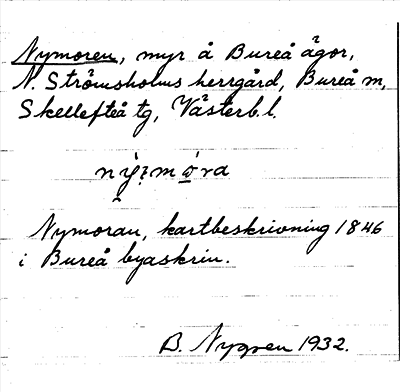 Nymoren, myr å Bureå ägor,
N. Strömsholms herrgård, Bureå m,
Skellefteå tg, Västerb.l.
Nymoran, kartbeskrivning 1846
i Bureå byaskrin.
B. Nygren 1932.